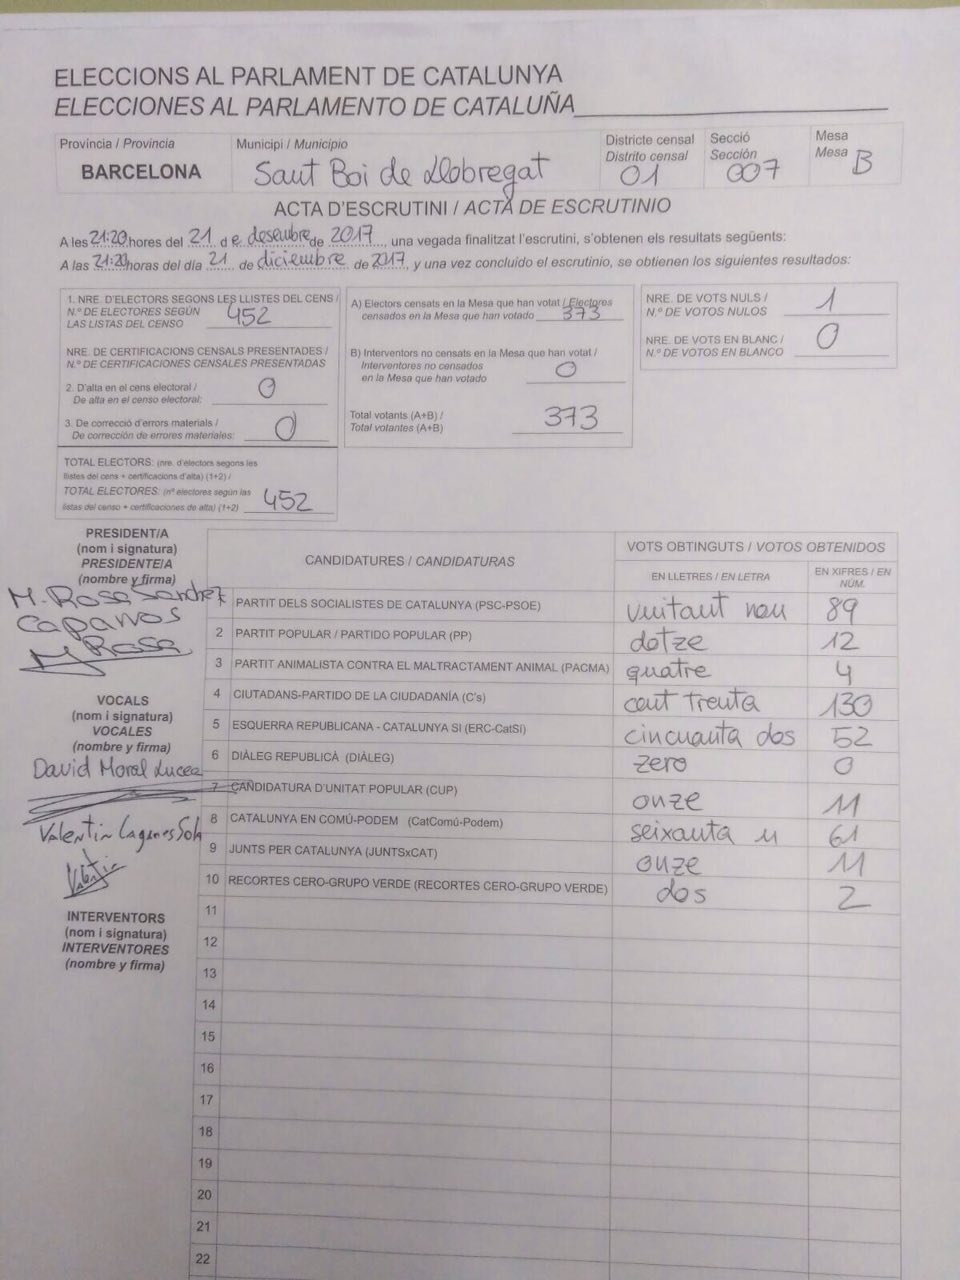 ELECCIONS AL PARLAMENT DE CATALUNYA
ELECCIONES AL PARLAMENTO DE CATALUÑA
Província / Provincia
BARCELONA
Municipi / Municipio
Sant Boi de Llobregat
Districte censal
Distrito censal
01
Secció
Sección
007
Mesa
Mesa
B
ACTA D'ESCRUTINI / ACTA DE ESCRUTINIO
A les 21:20 hores del 21 d e desembre de 2017, una vegada finalitzat l'escrutini, s'obtenen els resultats següents:
A las 21:20 horas del día 21 de diciembre de 2017, y una vez concluido el escrutinio, se obtienen los siguientes resultados:
1. NRE. D'ELECTORS SEGONS LES LLISTES DEL CENS /
N.º DE ELECTORES SEGÚN
LAS LISTAS DEL CENSO 452
NRE. DE CERTIFICACIONS CENSALS PRESENTADES /
N.º DE CERTIFICACIONES CENSALES PRESENTADAS
2. D'alta en el cens electoral /
De alta en el censo electoral: 0
3. De correcció d'errors materials /
De corrección de errores materiales: 0
TOTAL ELECTORS: (nre. d'electors segons les
llistes del cens + certificacions d'alta) (1+2) /
TOTAL ELECTORES: (nº electores según las
listas del censo + certificaciones de alta) (1+2) 452
A) Electors censats en la Mesa que han votat / Electores
censados en la Mesa que han votado 373
B) Interventors no censats en la Mesa que han votat /
Interventores no censados
en la Mesa que han votado 0
Total votants (A+B) /
Total votantes (A+B) 373
NRE. DE VOTS NULS /
N.º DE VOTOS NULOS 1
NRE. DE VOTS EN BLANC /
N.º DE VOTOS EN BLANCO 0
PRESIDENT/A
(nom i signatura)
PRESIDENTE/A
(nombre y firma)
M. Rosa Sanchez
Caparros
M Rosa
VOCALS
(nom i signatura)
VOCALES
(nombre y firma)
David Moral Lucea
Valentin
Valentin
INTERVENTORS
(nom i signatura)
INTERVENTORES
(nombre y firma)
CANDIDATURES / CANDIDATURAS
VOTS OBTINGUTS / VOTOS OBTENIDOS
EN LLETRES / EN LETRA
EN XIFRES / EN NÚM.
PARTIT DELS SOCIALISTES DE CATALUNYA (PSC-PSOE) vuitant nou 89
2 PARTIT POPULAR / PARTIDO POPULAR (PP) dotze 12
3 PARTIT ANIMALISTA CONTRA EL MALTRACTAMENT ANIMAL (PACMA) quatre 4
4 CIUTADANS-PARTIDO DE LA CIUDADANÍA (C's) cent trenta 130
5 ESQUERRA REPUBLICANA - CATALUNYA SI (ERC-CatSí) cincuanta dos 52
6 DIÀLEG REPUBLICÀ (DIÀLEG) zero 0
7 CANDIDATURA D'UNITAT POPULAR (CUP) onze 11
8 CATALUNYA EN COMÚ-PODEM (CatComú-Podem) seixanta u 61
9 JUNTS PER CATALUNYA (JUNTSxCAT) onze 11
10 RECORTES CERO-GRUPO VERDE (RECORTES CERO-GRUPO VERDE) dos 2
11
12
13
14
15
16
17
18
19
20
21
22